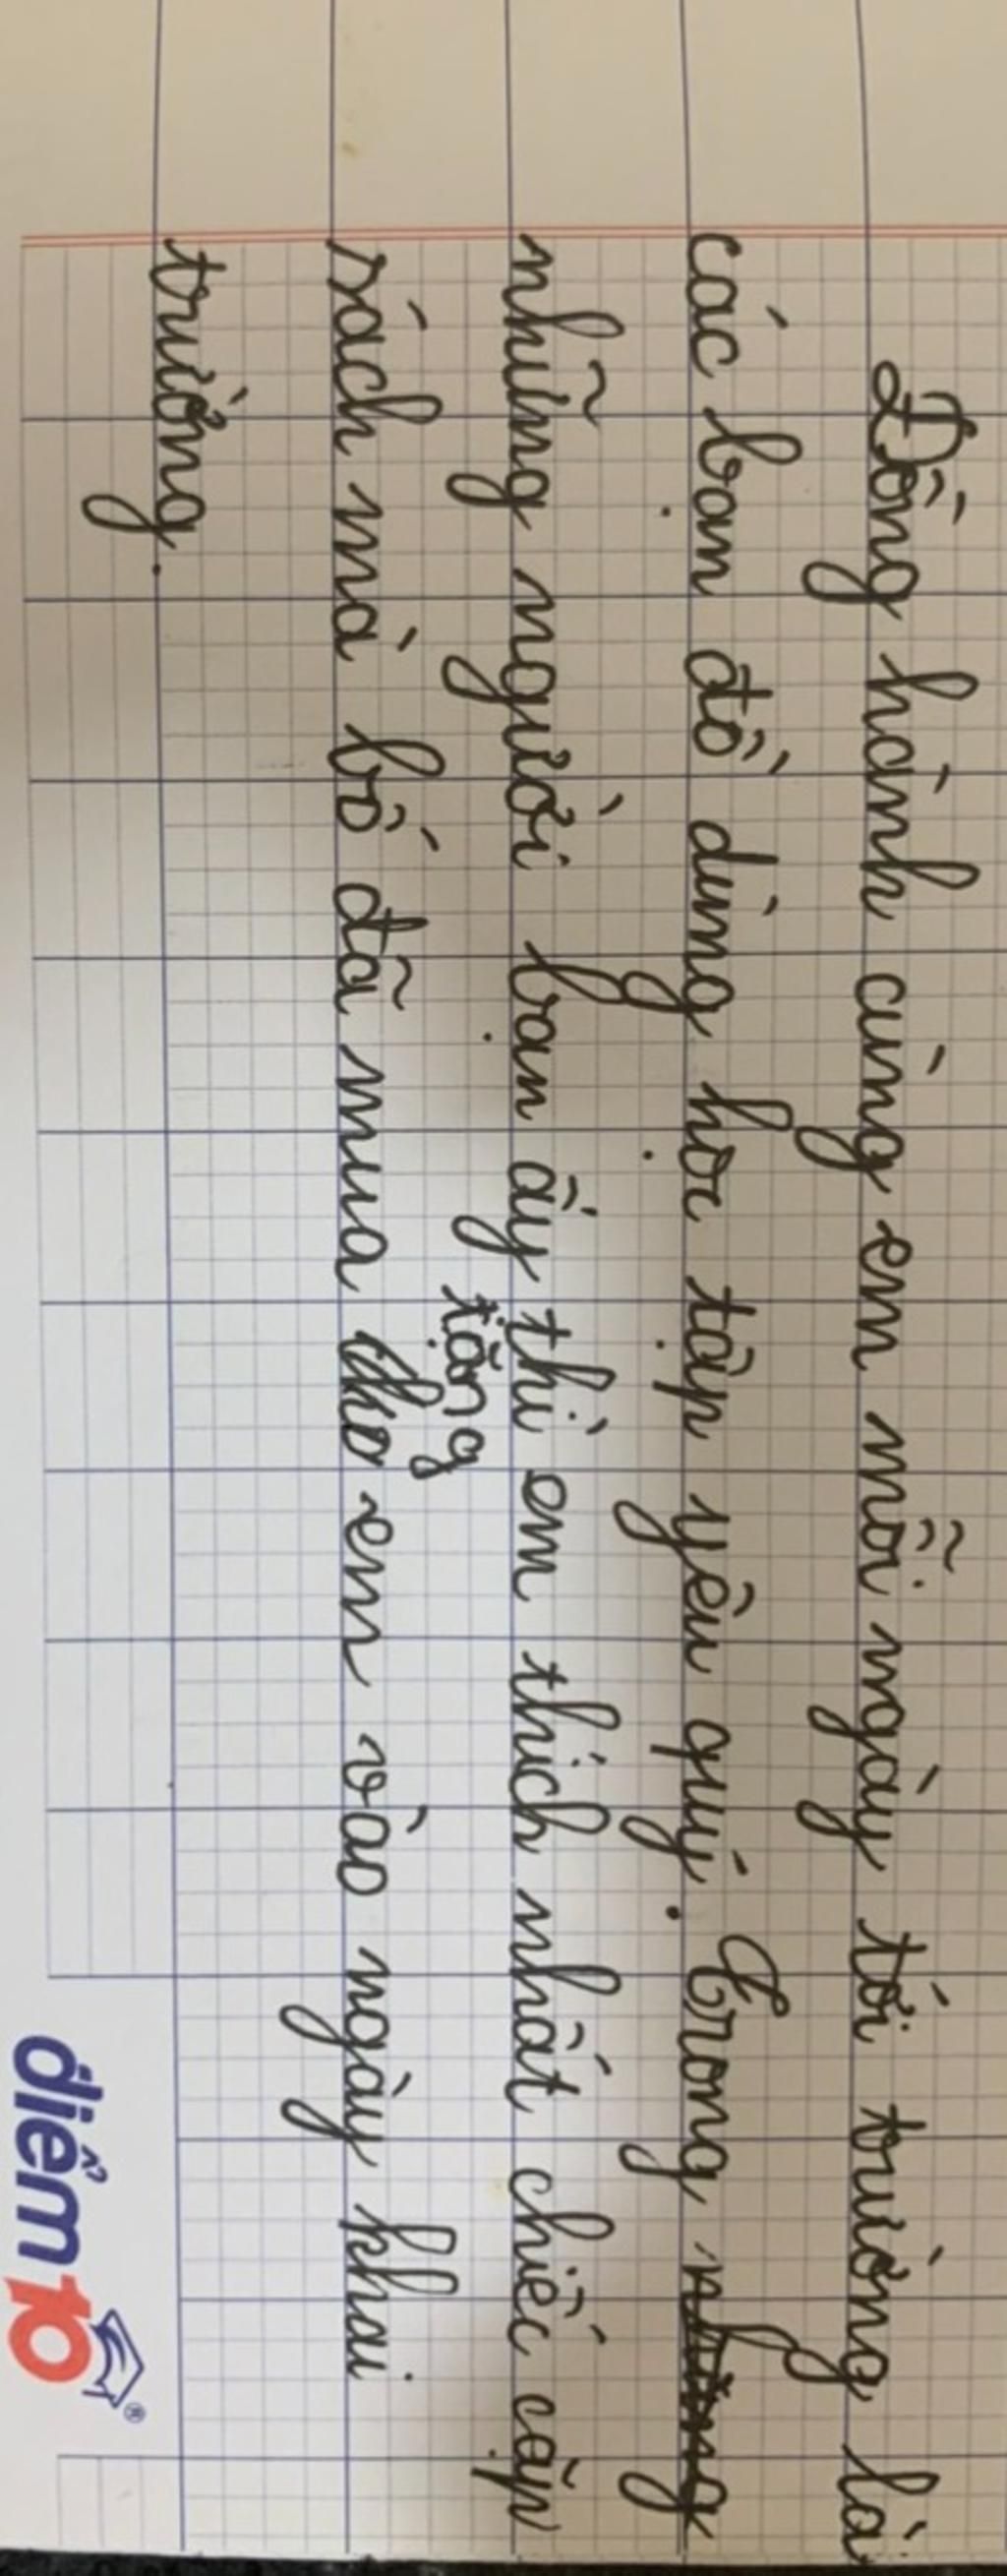 Đồng hành cùng em mỗi ngày tới trường là
các bạn đồ dùng học tập yêu quý. Trong những
những người bạn ấy thì em thích nhất chiếc cặp
tặng
sách mà bố đã mua cho em vào ngày khai
trường.
điểm 10®